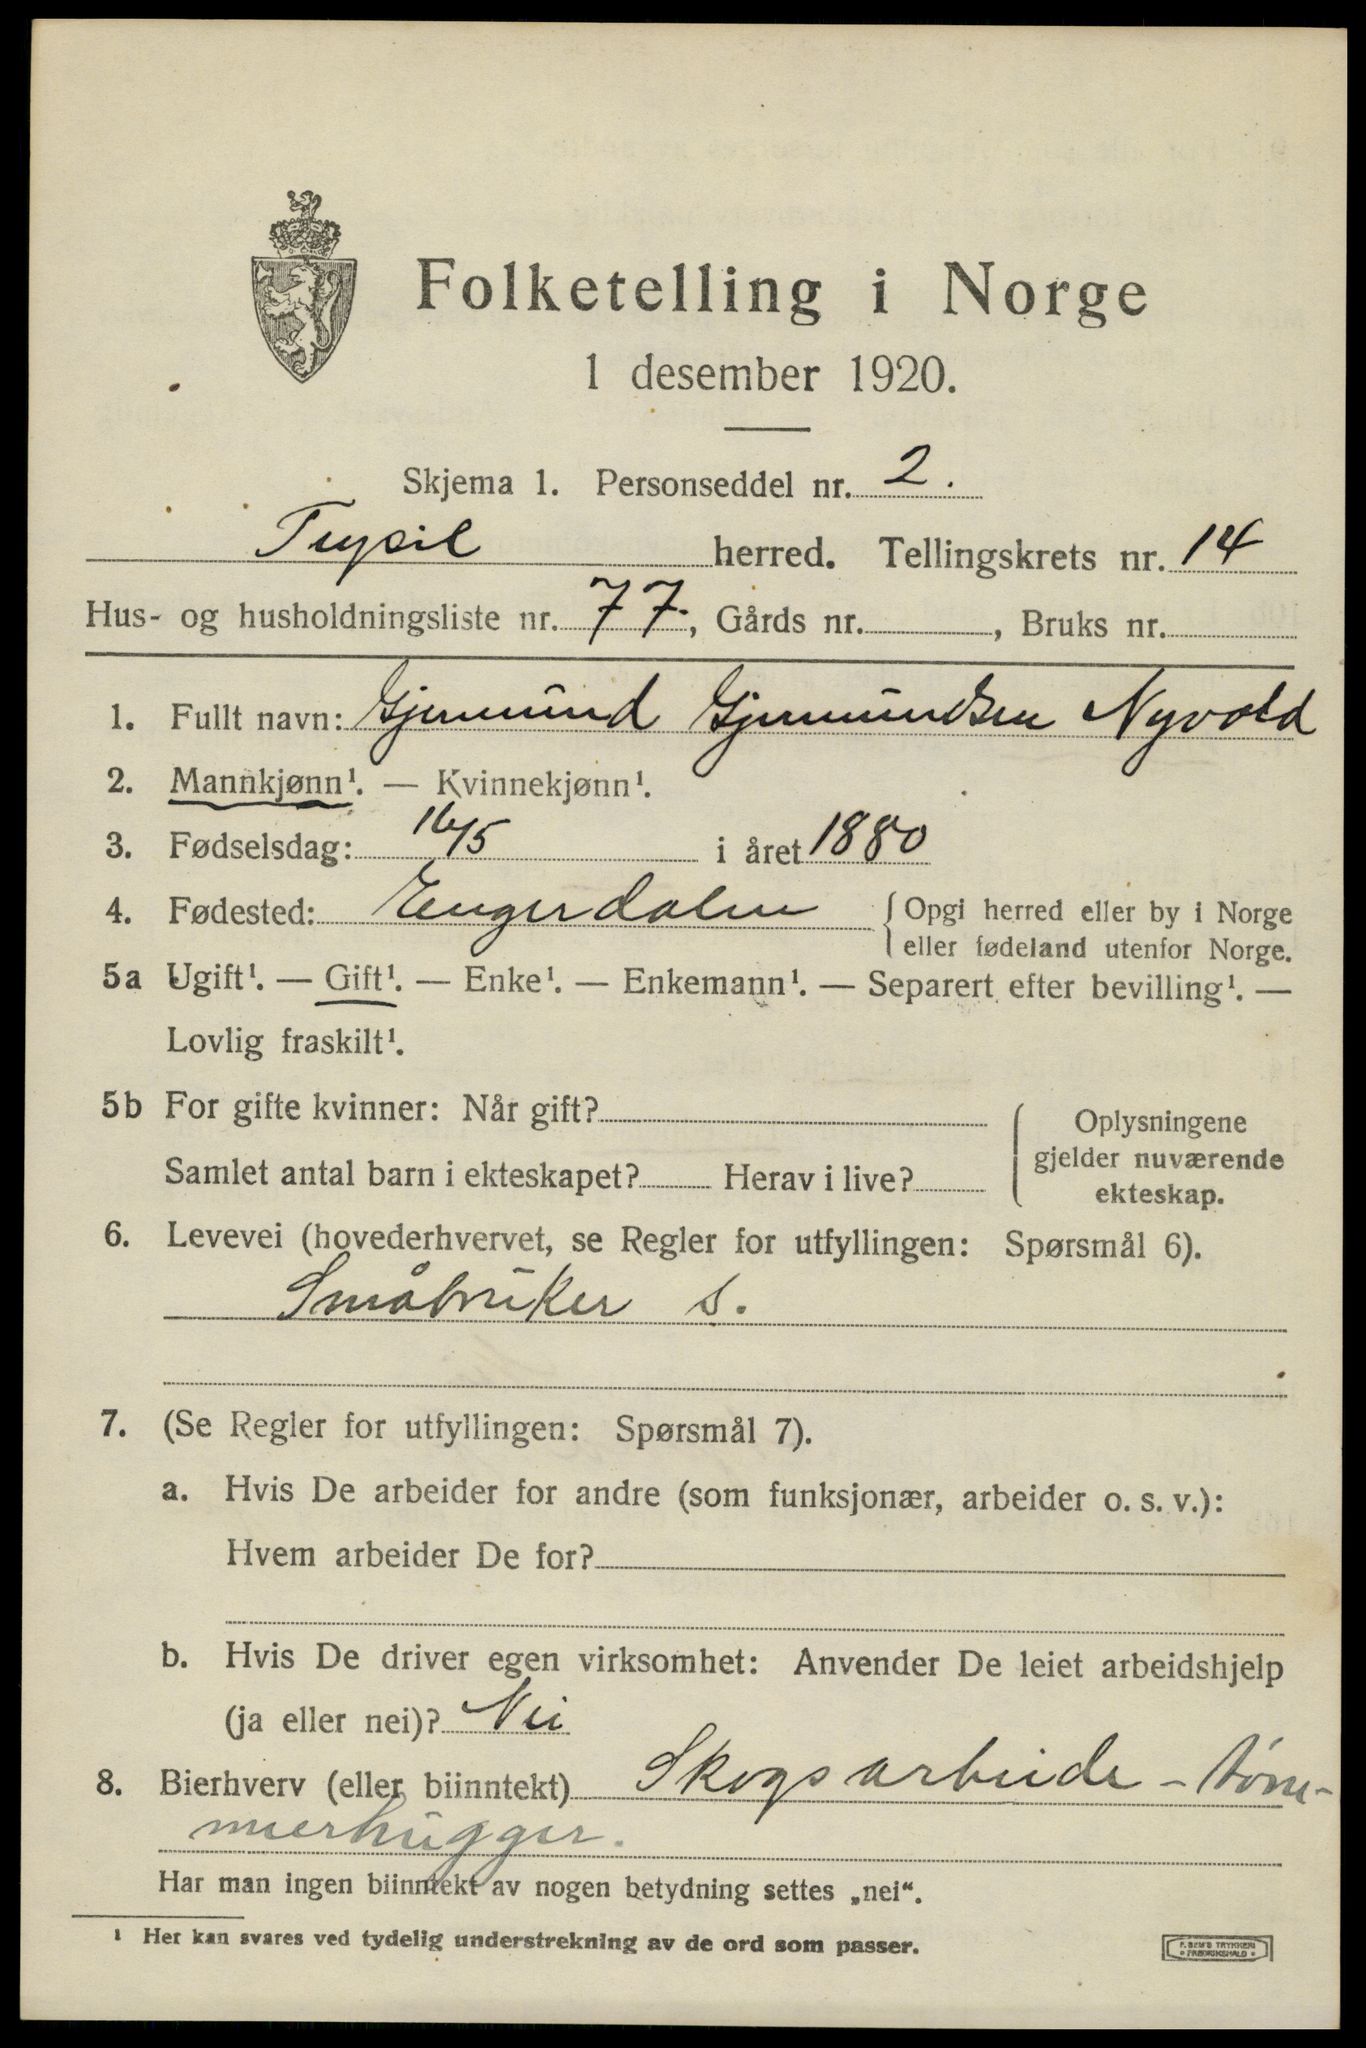 Folketelling i Norge
1 desember 1920.
Skjema 1. Personseddel nr. 2.
Trysil herred. Tellingskrets nr. 14
Hus- og husholdningsliste nr. 77., Gårds nr. , Bruks nr.
1. Fullt navn: Gjermund Gjermundsen Nyvold
2. Mannkjønn¹. — Kvinnekjønn¹.
3. Fødselsdag: 16/5 i året 1880
4. Fødested: Engerdalen { Opgi herred eller by i Norge
eller fødeland utenfor Norge.
5a Ugift¹. — Gift¹. — Enke¹. — Enkemann¹. — Separert efter bevilling¹. —
Lovlig fraskilt¹.
5b For gifte kvinner: Når gift?
Samlet antal barn i ekteskapet? Herav i live?
Oplysningene
gjelder nuværende
ekteskap.
6. Levevei (hovederhvervet, se Regler for utfyllingen: Spørsmål 6).
Småbruker s.
7. (Se Regler for utfyllingen: Spørsmål 7).
a. Hvis De arbeider for andre (som funksjonær, arbeider o. s. v.):
Hvem arbeider De for?
b. Hvis De driver egen virksomhet: Anvender De leiet arbeidshjelp
(ja eller nei)? Nei
8. Bierhverv (eller biinntekt) Skogsarbeide - tøm-
merhugger.
Har man ingen biinntekt av nogen betydning settes „nei“.
¹ Her kan svares ved tydelig understrekning av de ord som passer.
F. SEM'S TRYKKERI
FREDRIKSHALD